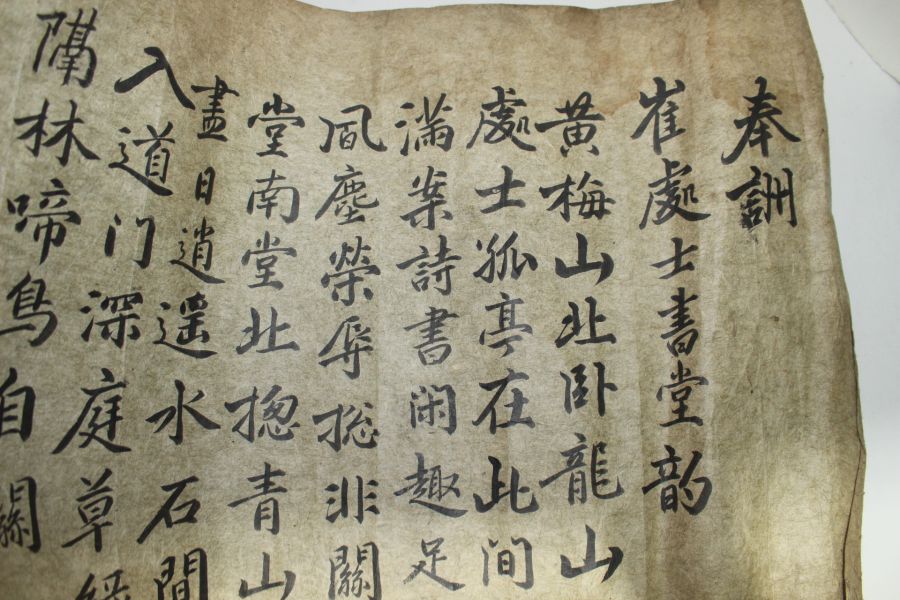 奉訓
崔處士書堂韵
黄梅山北卧龍山
處士孤亭在此間
滿案詩書閑趣足
風塵榮辱捴非關
堂南堂北揔青山
盡日逍遥水石間
入道門深庭草
隔林啼鳥自關